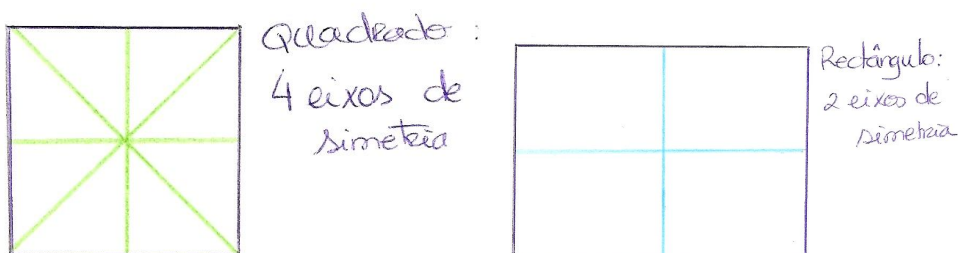 Quadrado:
4 eixos de
simetria
Rectângulo:
2 eixos de
simetria